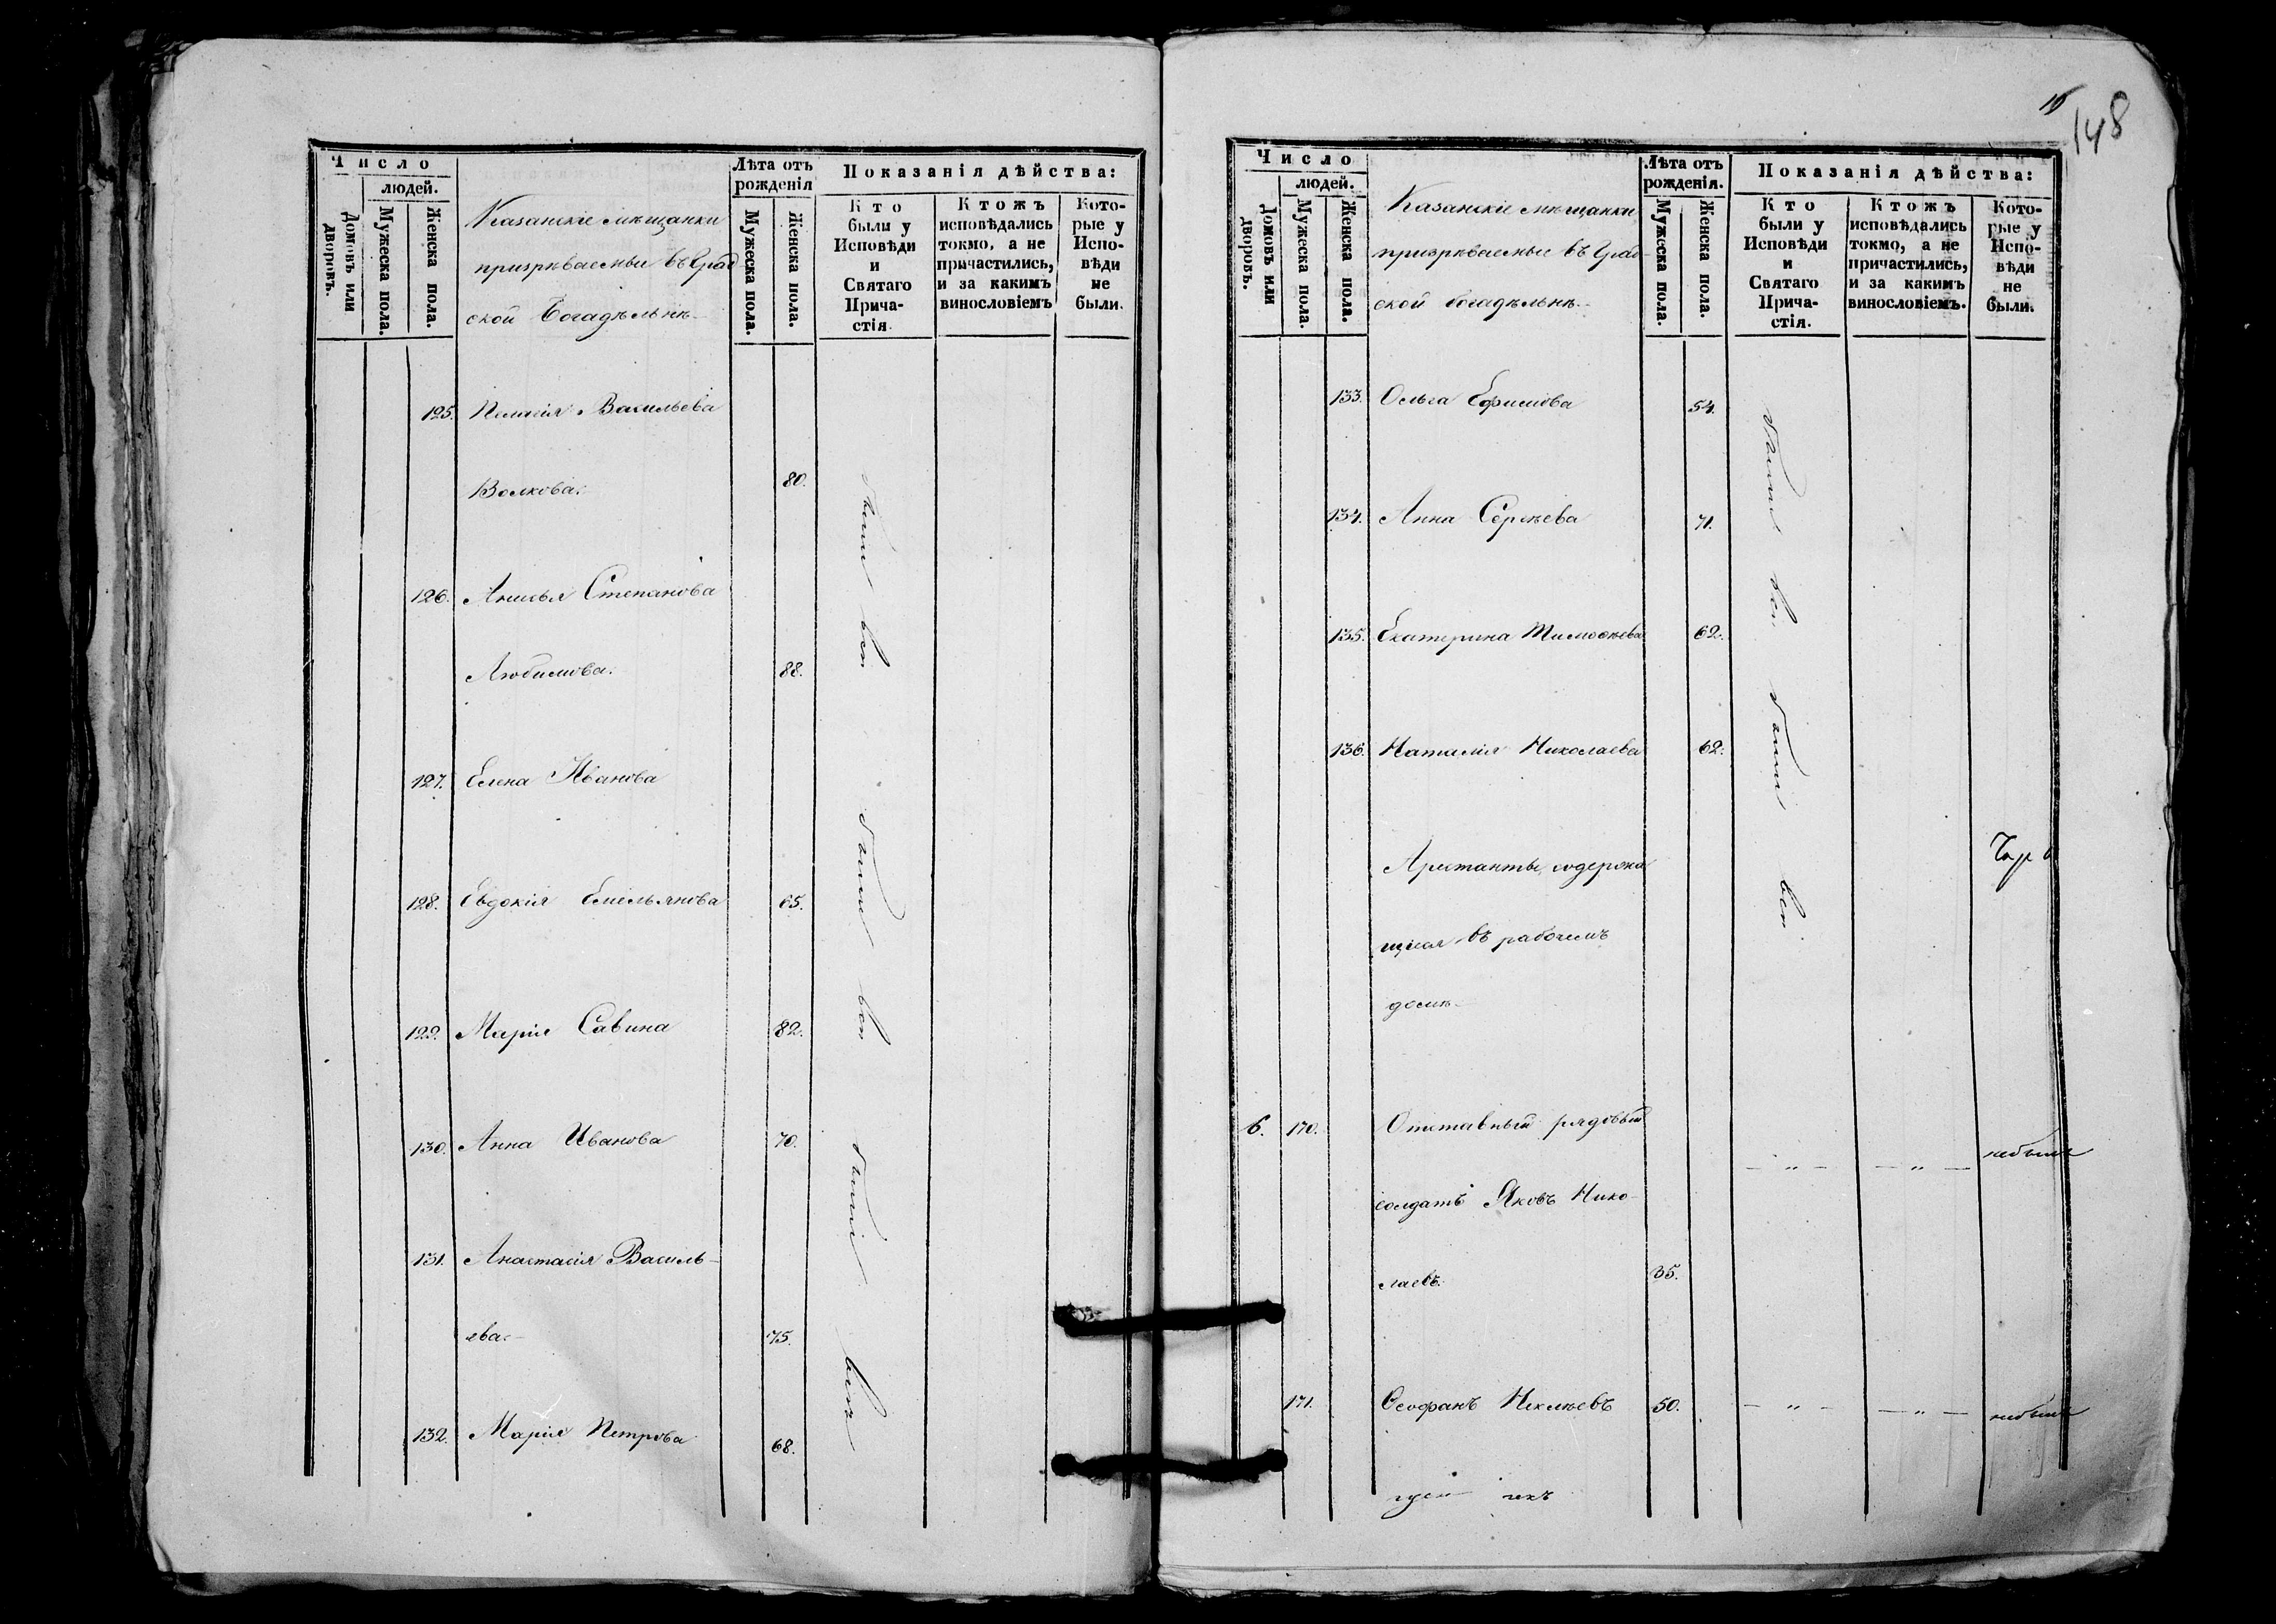 Число
людей.
Домовъ или дворовъ.
Мужеска пола.
Женска пола.
Казанскіе мѣщанки
призрѣваемые въ Град
ской Богадѣльнѣ
Лѣта отъ рожденія
Мужеска пола.
Женска пола.
Показанія дѣйства:
Кто были у Исповѣди и Святаго Прича-стія.
Ктожъ исповѣдались токмо, а не причастились, и за какимъ винословіемъ
Кото-рые у Испо-вѣди не были.
125. Пелагія Васильева
Волкова. 80.
126. Анисья Степанова
Любимова. 88.
127. Елена Иванова
128. Евдокія Емельянова 65.
129. Марія Савина 82.
130. Анна Иванова 70.
131. Анастасія Василь-
ева. 75.
132. Марія Петрова 68.
были вси
были вси
были вси
148
Число
людей.
Домовъ или дворовъ.
Мужеска пола.
Женска пола.
Казанскіе мѣщанки
призрѣваемые въ Град-
ской богадѣльнѣ
Лѣта отъ рожденія.
Мужеска пола.
Женска пола.
Показанія дѣйства:
Кто были у Исповѣди и Святаго Прича-стія.
Ктожъ исповѣдались токмо, а не причастились, и за какимъ винословіемъ.
Кото-рые у Испо-вѣди не были.
133. Ольга Ефимова 54.
134. Анна Сергѣева 71.
135. Екатерина Тимоѳѣева 62.
136. Наталія Николаева 62.
были вси
были вси
Арестанты, содержа
щіеся въ рабочемъ
домѣ
6. 170. Отставный рядовый — „ — — „ — небылъ
солдатъ Яковъ Нико-
лаевъ. 35.
171. Ѳеофанъ 50. — „ — — „ — небылъ